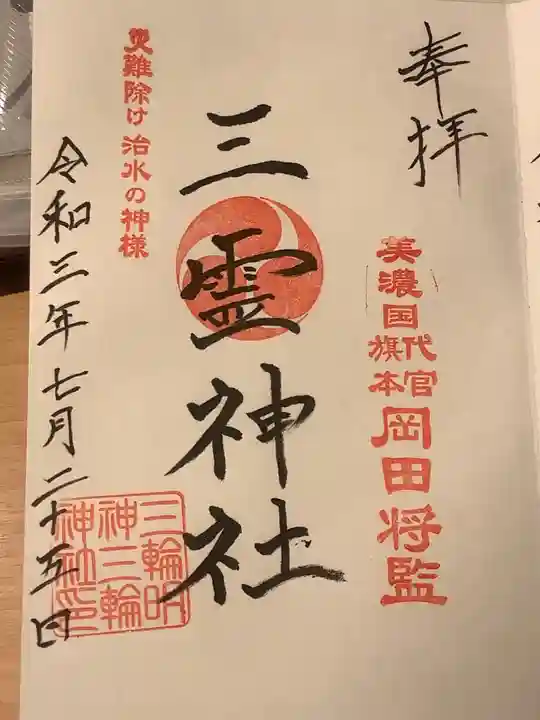 奉拝
美濃国代官
旗本
岡田将監
三霊神社
災難除け 治水の神様
令和三年七月二十五日
三輪明
神三輪
神社印